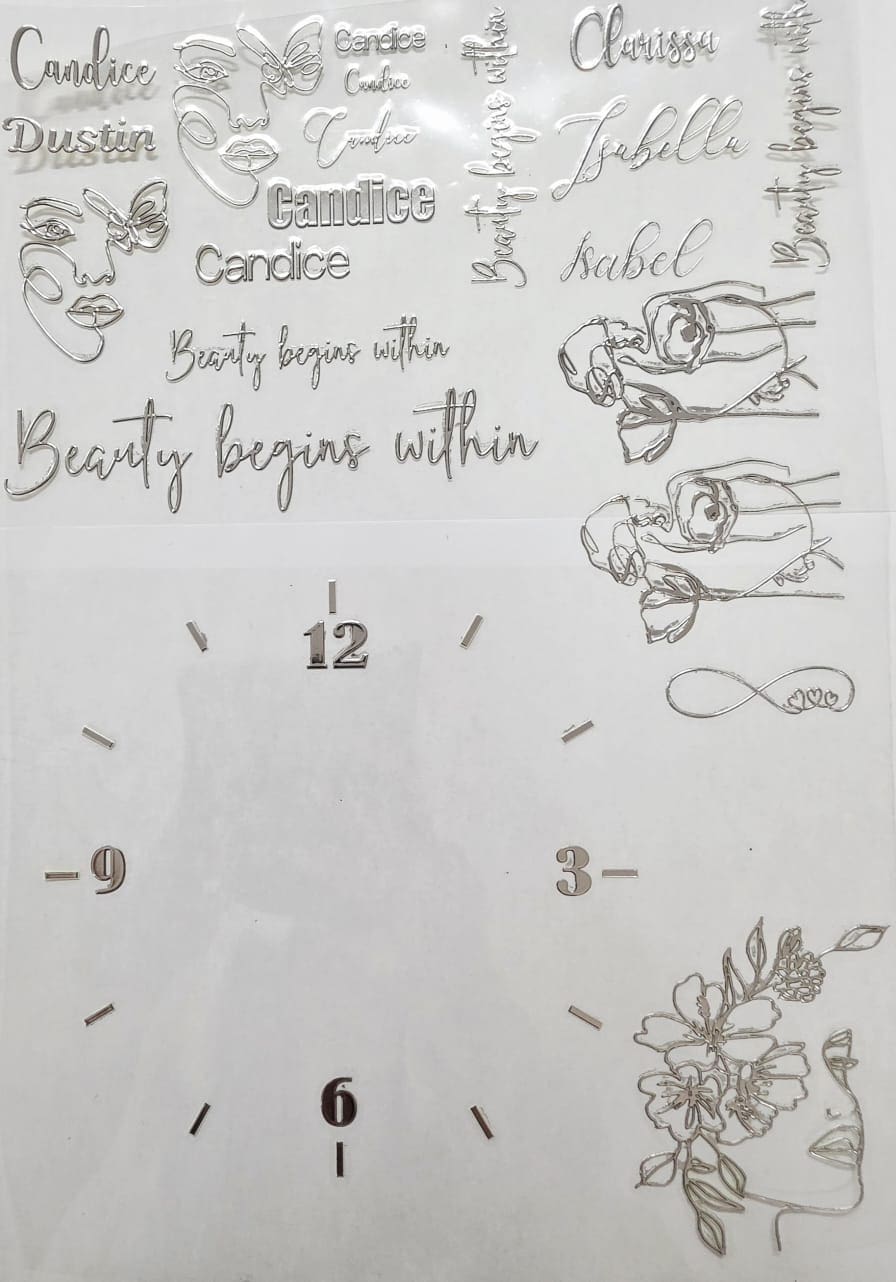 Candice
Dustin
Candice
Candice
Candice
Candice
Candice
Beauty begins within
Beauty begins within
Beauty begins within
Clarissa
Isabella
Isabel
Beauty begins with
12
9
3
6